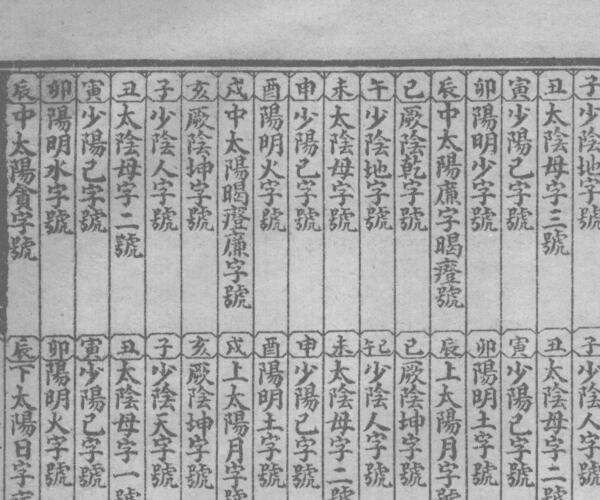 子少陰地字號
丑太陰母字三號
寅少陽己字號
卯陽明少字號
辰中太陽廉字暍瘞號
巳厥陰乾字號
午少陰地字號
未太陰母字號
申少陽己字號
酉陽明火字號
戌中太陽暍瘞廉字號
亥厥陰坤字號
子少陰人字號
丑太陰母字二號
寅少陽己字號
卯陽明水字號
辰中太陽貪字號
子少陰人字號
丑太陰母字二
寅少陽己字號
卯陽明土字號
辰上太陽月字號
巳厥陰坤字號
午少陰人字號
未太陰母字二號
申少陽己字號
酉陽明土字號
戌上太陽月字號
亥厥陰坤字號
子少陰天字號
丑太陰母字一號
寅少陽己字號
卯陽明火字號
辰下太陽日字